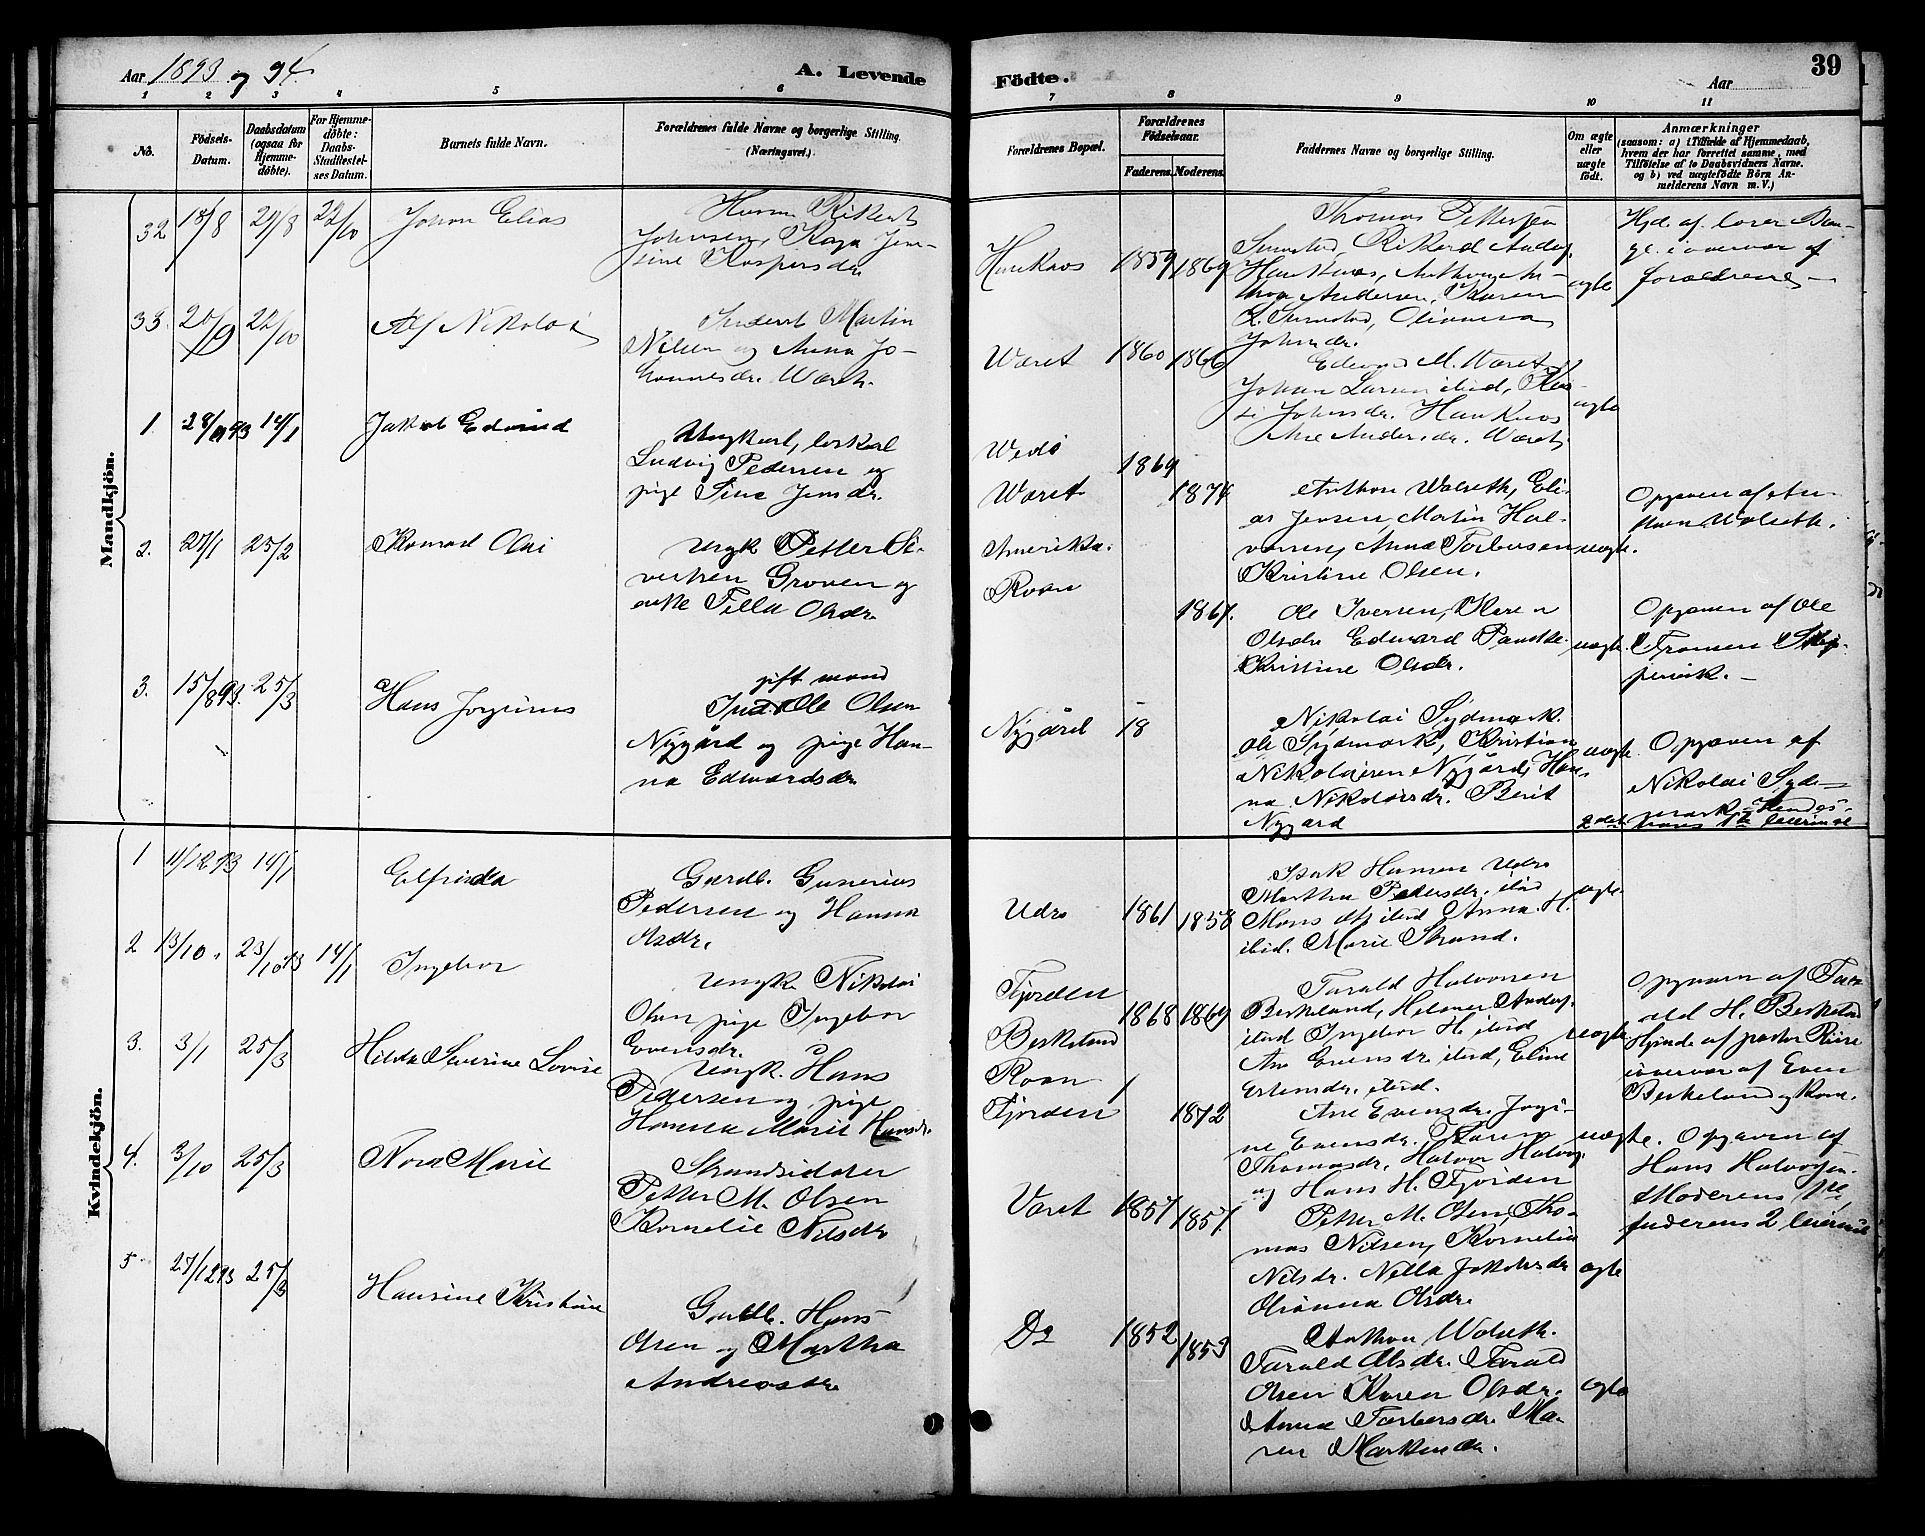 Aar 1893 og 94.
A. Levende
Födte.
Aar
39
1 2 3 4 5 6 7 8 9 10 11
No.
Födsels-Datum.
Daabsdatum (ogsaa for Hjemme-döbte).
For Hjemme-döbte: Daabs-Stadfæstel-ses Datum.
Barnets fulde Navn.
Forældrenes fulde Navne og borgerlige Stilling.
(Næringsvei.)
Forældrenes Bopæl.
Forældrenes Födselsaar.
Faderens. Moderens.
Faddernes Navne og borgerlige Stilling.
Om ægte eller uægte födt.
Anmærkninger
(saasom: a) i Tilfælde af Hjemmedaab,
hvem der har forrettet samme, med
Tilföielse af to Daabsvidners Navne,
og b) ved uægtefödte Börn An-
melderens Navn m. V.)
Mandkjön.
32 18/8 29/8 22/10 Johan Elias
Johnsen, Kaja Jen-
sine Kaspersdr.
Hanknos 1859 1869
Thomas Pettersen
Sumstad, Rikard Anders.
Hanknos,
Andersen, Karen
Sumstad,
Johnsdr.
ægte
Hjd. af lærer
i overvær af
forældrene
33. 20/9 22/10 Alf Nikolai
Inderst Martin
Nilsen og Anna Jo-
hannesdr. Wæret.
Wæret 1860 1866
M. Wæret
Johan Larsen ibid,
Johnsdr. Hanknos
Ane Andersdr. Wæret
ægte
1. 28/9 93 14/1 Jakob Edvind
Ungkarl, løskarl
Ludvig Pedersen og
pige Sine Jensdr.
Wedø
Wæret
1869 1874
Anthon Wolseth, Eli-
as Jensen, Martin Hal-
vorsen, Anna Torbersen
Kristine Olsen.
uægte.
Opgaven af An-
thon Wolseth.
2. 27/1 25/2 Konrad Olai
Ungk. Petter Si-
vertsen Groven og
enke Tilla Olsdr.
Amerika.
Roan
1861.
Ole Iversen, Karen
Olsdr. Edward
Kristine Olsdr.
uægte.
Opgaven af Ole
3. 15/8 93. 25/3 Hans Jørginus
gift mand
Ind. Ole Olsen
Nygård og pige Han-
na Edwardsdr.
Nygård 18
Nikolai Sydmark.
Ole Sydmark, Kristian
Nikolaisen Nygård, Han-
na Nikolaisdr. Berit
Nygård
uægte
Opgaven af
Nikolai Syd-
mark. Hendes
2det hans 1ste leiermål
Kvindekjön.
1 11/12 93 14/1 Elfrida
Gårdb. Gunerius
Pedersen og Hanna
Olsdr.
Udrø 1861 1858
Isak Hansen Udrø
Martha Pedersdr. ibid
Anna H.
ibid. Marie Strand.
ægte
2 13/10. 23/10 93 14/1 Ingebor
Ungk. Nikolai
Olsen pige Ingebor
Evensdr.
Fjorden
Berkeland
1868 1869
Tarald Halvorsen
Berkeland, Helmer Anders.
ibid Ingebor H. ibid
Ane Evensdr. ibid, Eline
Estensdr. ibid.
uægte.
Opgaven af Tar-
ald H. Berkeland
Hjmde af pastor Riise
i overvær af Even
Berkeland og kone.
3. 3/1 25/3 Hilda Severine Lovise
Ungk. Hans
Pedersen og pige
Hanna Marie Hansdr.
Roan
Fjorden
1872
Ane Evensdr. Jørgi-
ne Evensdr. Karen
Thomasdr. Halvor Halvors.
og Hans H. Fjorden
uægte.
Opgaven af
Hans Halvorsen.
Moderens 1ste,
faderens 2 leiermål
4. 3/10 25/3 Nora Marie
Strandsidder
Petter M. Olsen
Kornelie Nilsdr.
Været 1857 1857
Petter M. Olsen, Tho-
mas Nilsen, Kornelia
Nilsdr. Nella Jakobsdr.
Olsdr.
ægte
5 27/12 93 25/3 Hansine Kristine
Gårdb. Hans
Olsen og Martha
Andreasdr.
Do 1852 1853
Anthon Wolseth.
Tarald Olsdr. Tarald
Olsen Karen Olsdr.
Anna Torbersdr. Ma-
ren Martinsdr.
ægte